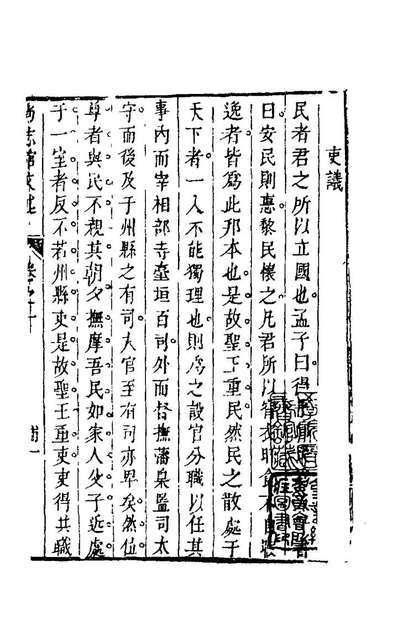 吏議
民者君之所以立國也。孟子曰得
曰安民則惠黎民懷之凡君所以宵衣旰食不自
逸者皆爲此邦本也。是故聖王重民然民之散處于
天下者一人不能獨理也。則爲之設官分職以任其
事内而宰相部寺臺垣百司。外而督撫藩臬監司太
守而後及于州縣之有司。大官至有司亦卑矣。然位
尊者與民不親其朝夕撫摩吾民如家人父子近處
于一室者反不若州縣吏是故聖王重吏吏得其職
尚志館文述